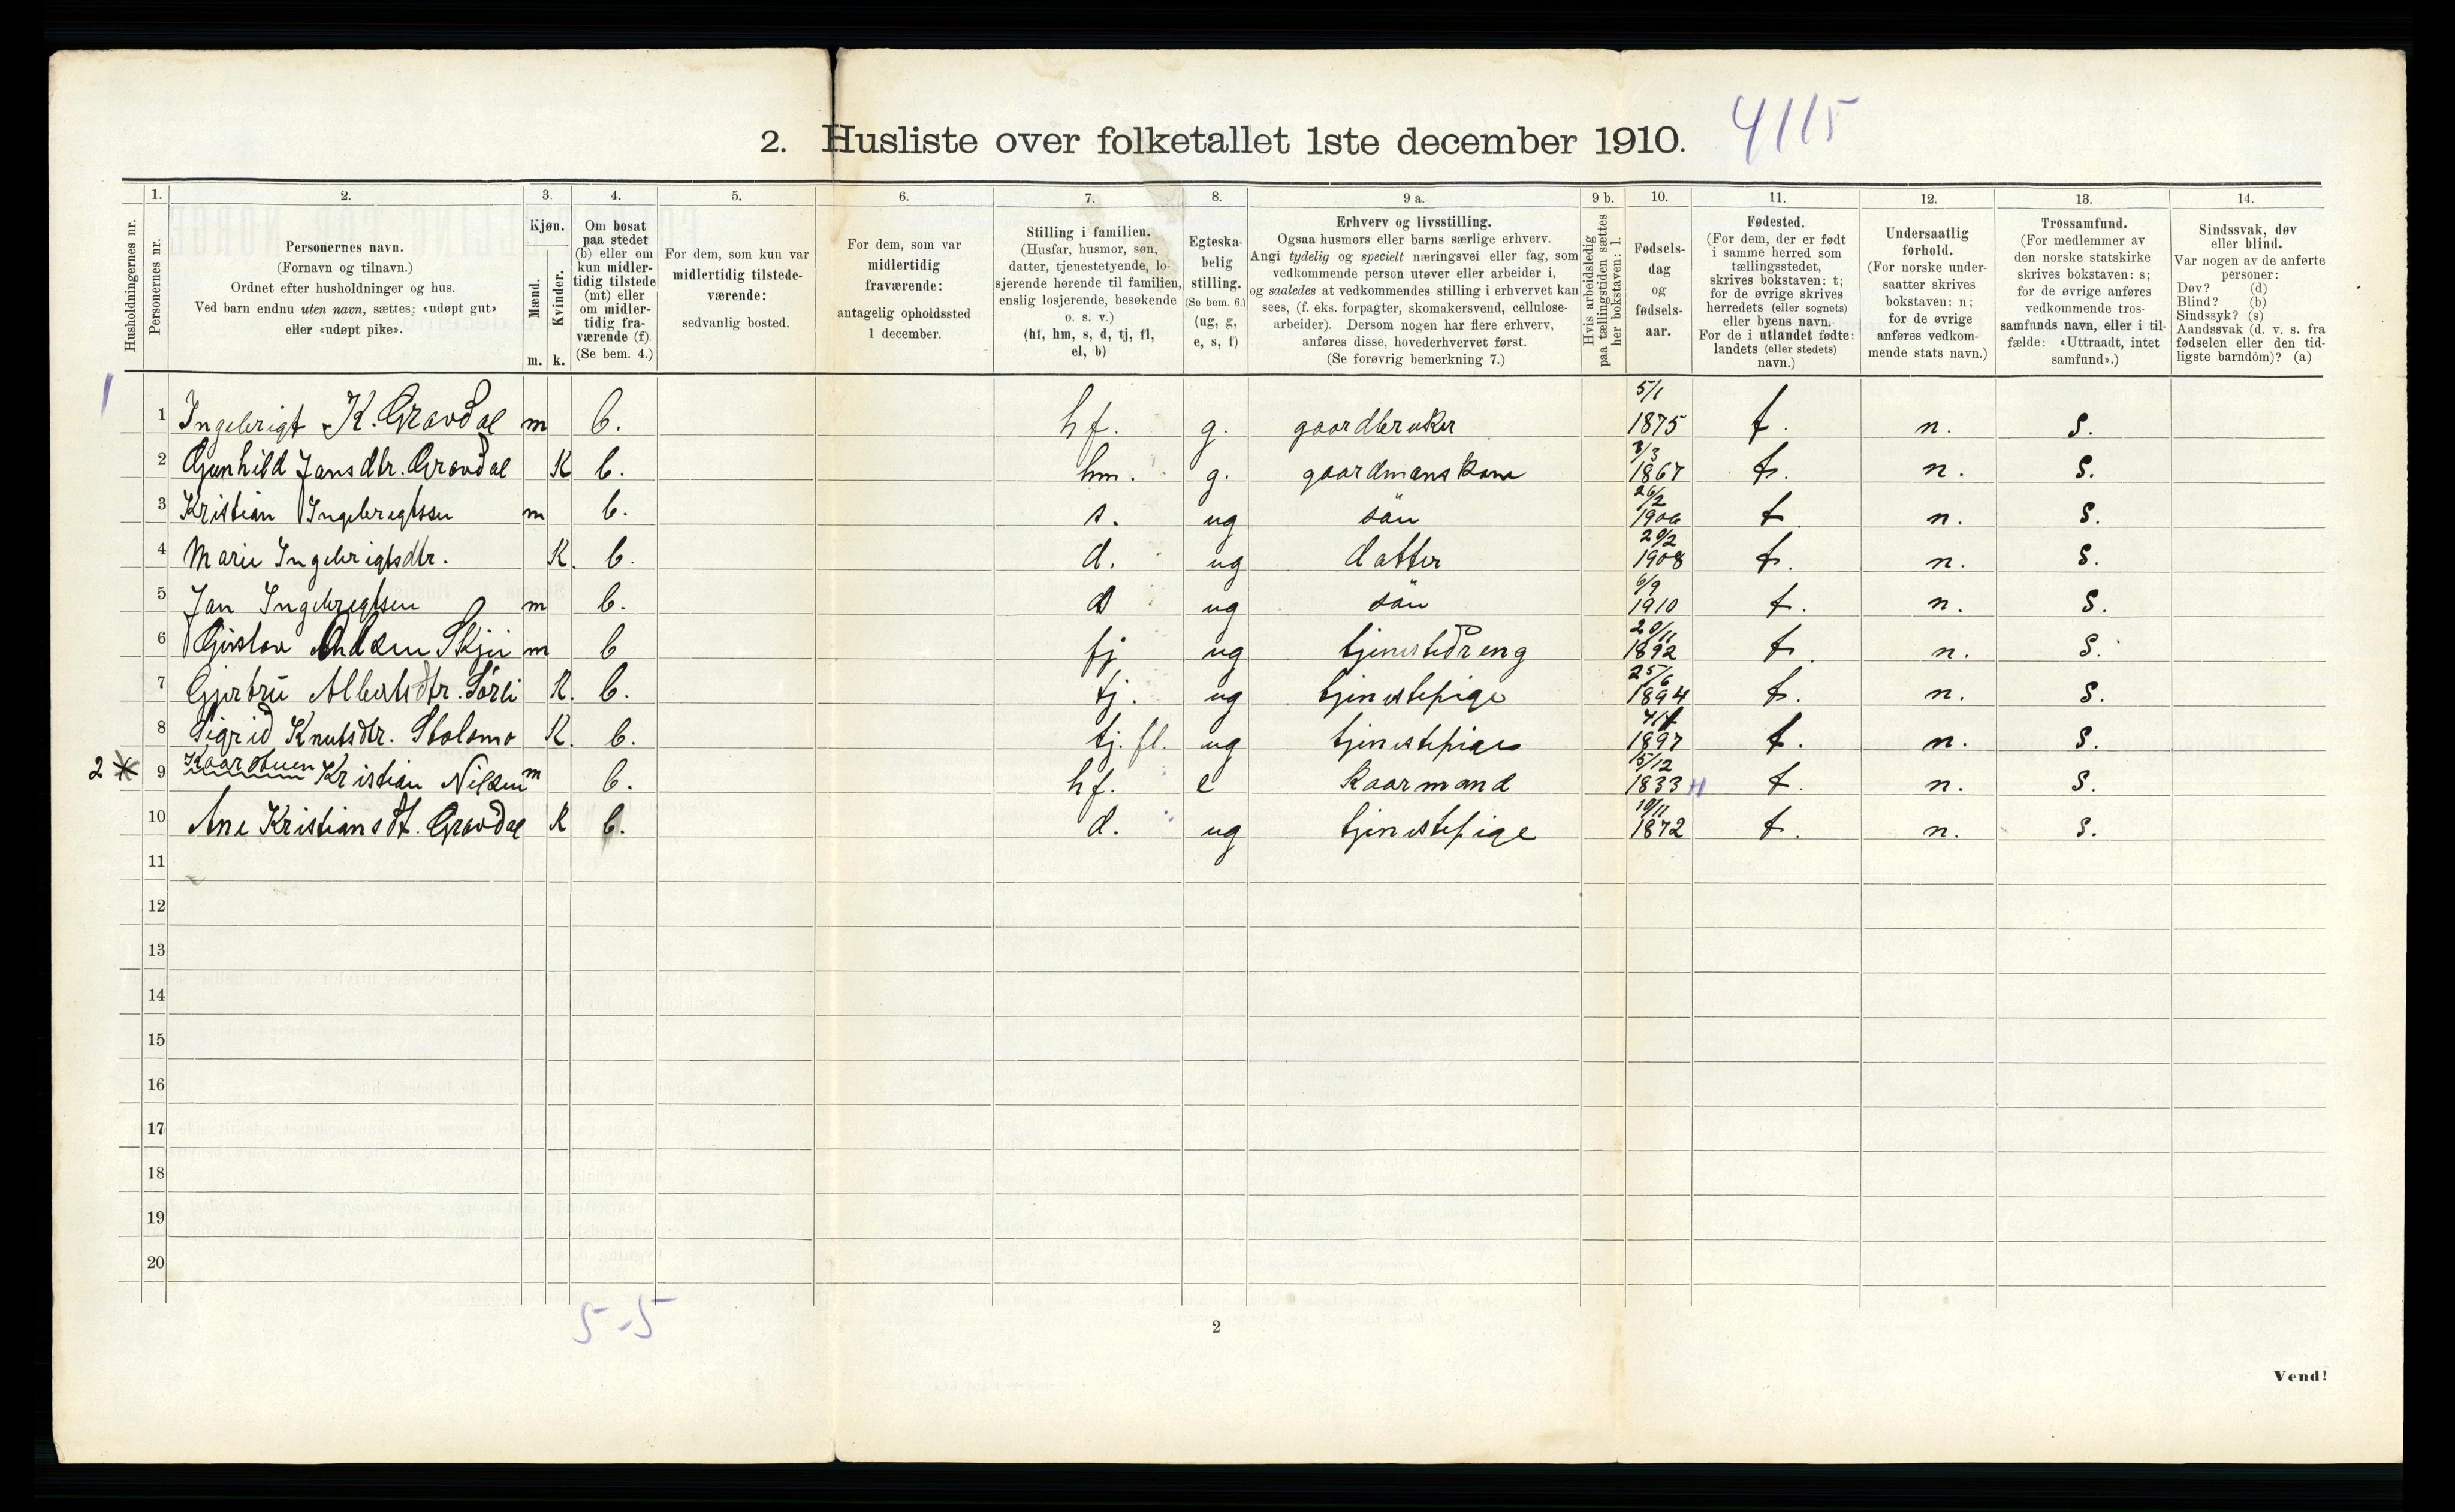 2. Husliste over folketallet 1ste december 1910. 4115
Husholdningernes nr.
1.
Personernes nr.
2.
Personernes navn.
(Fornavn og tilnavn.)
Ordnet efter husholdninger og hus.
Ved barn endnu uten navn, sættes: «udøpt gut»
eller «udøpt pike».
3.
Kjøn.
Mænd.
Kvinder.
m. k.
4.
Om bosat
paa stedet
(b) eller om
kun midler-
tidig tilstede
(mt) eller
om midler-
tidig fra-
værende (f).
(Se bem. 4.)
5.
For dem, som kun var
midlertidig tilstede-
værende:
sedvanlig bosted.
6.
For dem, som var
midlertidig
fraværende:
antagelig opholdssted
1 december.
7.
Stilling i familien.
(Husfar, husmor, søn,
datter, tjenestetyende, lo-
sjerende hørende til familien,
enslig losjerende, besøkende
o. s. v.)
(hf, hm, s, d, tj, fl,
el, b)
8.
Egteska-
belig
stilling.
(Se bem. 6.)
(ug, g,
e, s, f)
9 a.
Erhverv og livsstilling.
Ogsaa husmors eller barns særlige erhverv.
Angi tydelig og specielt næringsvei eller fag, som
vedkommende person utøver eller arbeider i,
og saaledes at vedkommendes stilling i erhvervet kan
sees, (f. eks. forpagter, skomakersvend, cellulose-
arbeider). Dersom nogen har flere erhverv,
anføres disse, hovederhvervet først.
(Se forøvrig bemerkning 7.)
9 b.
Hvis arbeidsledig
paa tællingstiden sættes
her bokstaven: l.
10.
Fødsels-
dag
og
fødsels-
aar.
11.
Fødested.
(For dem, der er født
i samme herred som
tællingsstedet,
skrives bokstaven: t;
for de øvrige skrives
herredets (eller sognets)
eller byens navn.
For de i utlandet fødte:
landets (eller stedets)
navn.)
12.
Undersaatlig
forhold.
(For norske under-
saatter skrives
bokstaven: n;
for de øvrige
anføres vedkom-
mende stats navn.)
13.
Trossamfund.
(For medlemmer av
den norske statskirke
skrives bokstaven: s;
for de øvrige anføres
vedkommende tros-
samfunds navn, eller i til-
fælde: «Uttraadt, intet
samfund».)
14.
Sindssvak, døv
eller blind.
Var nogen av de anførte
personer:
Døv? (d)
Blind? (b)
Sindssyk? (s)
Aandssvak (d. v. s. fra
fødselen eller den tid-
ligste barndom)? (a)
1 1 Ingebrigt K. Gravdal m b. hf. g. gaardbruker 5/1 1875 t. n. s.
2 Gunhild Jansdtr. Gravdal K b. hm. g. gaardmanskone 3/3 1867 t. n. s.
3 Kristian Ingebregtssn m b. s. ug sön 26/2 1906 t n. s.
4 Marie Ingebrigtsdtr. K. b. d. ug datter 20/2 1908 t. n. s.
5 Jan Ingebregtsen m b. ug sön 6/9 1910 t. n. s.
6 m b tj ug tjenestedreng 20/11 1892 t. n. s.
7 Gjertru Albertsdtr. Sörli K. b. tj. ug tjenestepige 25/6 1894 t. n. s.
8 Sigrid Knutsdtr. Stolsmo K. b. tj. fl. ug tjenestepige 1897 t. n. s.
2 * 9 Kaarstuen Kristian Nilsen m b. hf. e Kaarmand 15/12 1833 t. n. s.
10 Ane Kristiansdt. Gravdal K b. d. ug tjenestepige 10/11 1872 t. n. s.
11
12
13
14
15
16
17
18
19
20
5-5
2
Vend!